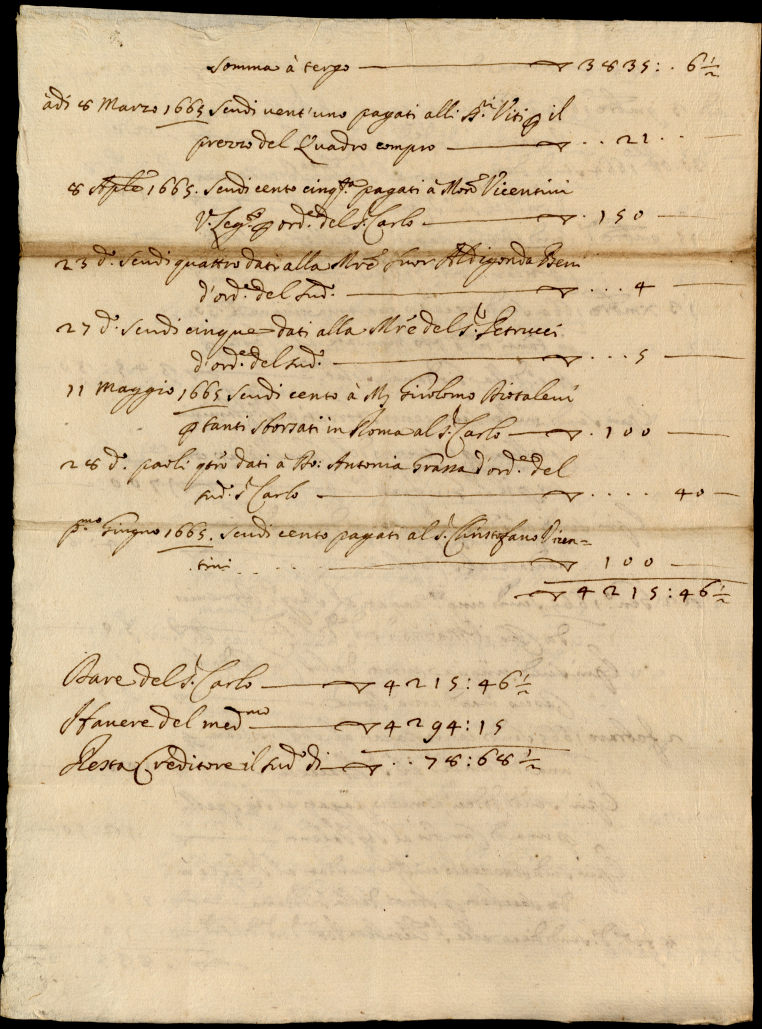 Somma à tergo ▽ 3835: . 6½
àdi 8 Marzo 1665 Scudi vent'uno pagati alli SS.ri Viti p il
prezzo del Quadro compro ▽ . . 21 . .
8 Aple 1665. Scudi cento cinq.ta pagati à Mons.r Vicentini
V. Leg.to p ord.e del S.r Carlo ▽ . 150
23 d.o Scudi quattro dati alla M.re Suor Aldigonda Beni
d'ord.e del sud.o ▽ . . . 4
27 d.o Scudi cinque dati alla M.re del S.r Petrucci
d'ord.e del sud.o ▽ . . . 5
11 Maggio 1665 Scudi cento à M.
p tanti sborsati in Roma al S.r Carlo ▽ . 100
28 d.o paoli qtro dati à Antonia Grassa d'ord.e del
sud.o S.r Carlo ▽ . . . . 40
p.mo Giugno 1665. Scudi cento pagati al S.r Christofano Vicen=
tini ▽ 100
▽ 4215:46½
Dare del S.r Carlo ▽ 4215:46½
Havere del med.mo ▽ 4294:15
Resta Creditore il sud.o di ▽ . . 78:68½